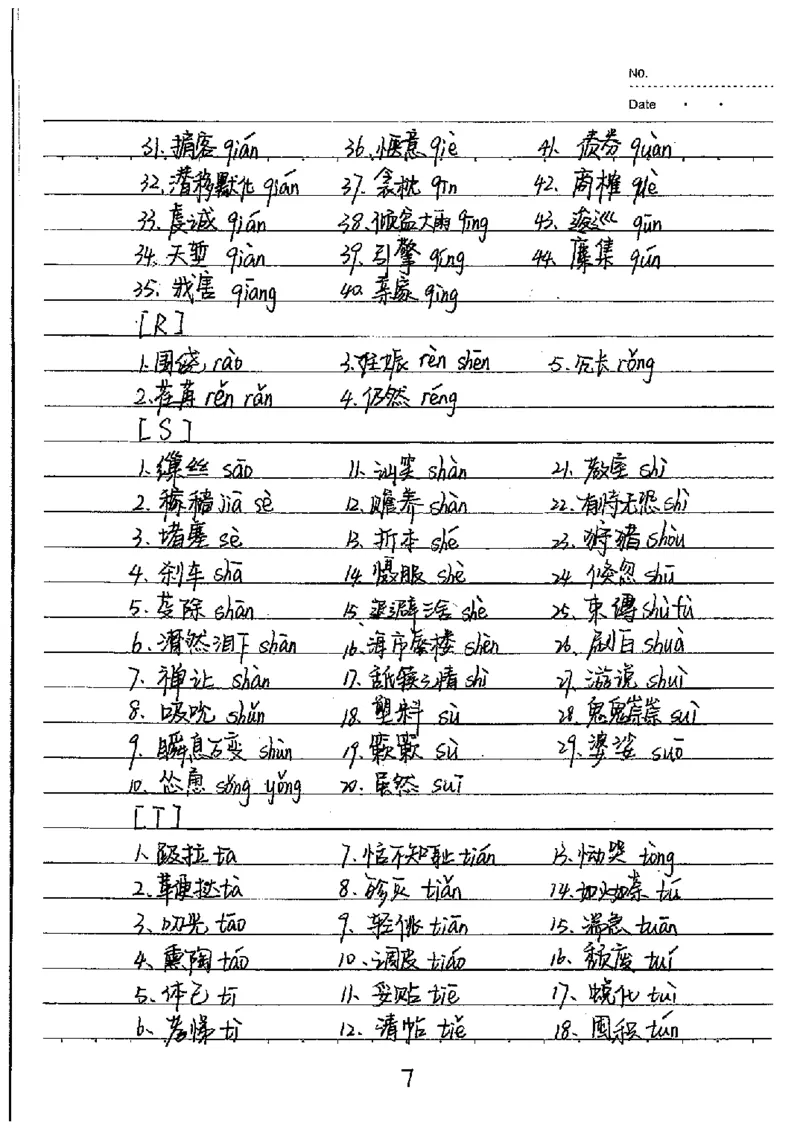 No.
Date
31. 掮客 qián 36. 惬意 qiè 41. 债券 quàn
32. 潜移默化 qián 37. 衾枕 qīn 42. 商榷 què
33. 虔诚 qián 38. 倾盆大雨 qīng 43. 逡巡 qūn
34. 天堑 qiàn 39. 引擎 qíng 44. 麇集 qún
35. 戕害 qiāng 40. 亲家 qìng
[R]
1. 围绕 rào 3. 妊娠 rèn shēn 5. 冗长 rǒng
2. 荏苒 rěn rǎn 4. 仍然 réng
[S]
1. 缫丝 sāo 11. 讪笑 shàn 21. 教室 shì
2. 稼穑 jià sè 12. 赡养 shàn 22. 有恃无恐 shì
3. 堵塞 sè 13. 折本 shé 23. 狩猎 shòu
4. 刹车 shā 14. 慑服 shè 24. 倏忽 shū
5. 芟除 shān 15. 退避三舍 shè 25. 束缚 shù fù
6. 潸然泪下 shān 16. 海市蜃楼 shèn 26. 刷白 shuà
7. 禅让 shàn 17. 舐犊之情 shì 27. 游说 shuì
8. 吸吮 shǔn 18. 塑料 sù 28. 鬼鬼祟祟 suì
9. 瞬息万变 shùn 19. 簌簌 sù 29. 婆娑 suō
10. 怂恿 sǒng yǒng 20. 虽然 suī
[T]
1. 趿拉 tā 7. 恬不知耻 tián 13. 恸哭 tòng
2. 鞭挞 tà 8. 殄灭 tiǎn 14. 如火如荼 tú
3. 叨光 tāo 9. 轻佻 tiāo 15. 湍急 tuān
4. 熏陶 táo 10. 调皮 tiáo 16. 颓废 tuí
5. 体己 tī 11. 妥贴 tiē 17. 蜕化 tuì
6. 孝悌 tì 12. 请帖 tiě 18. 囤积 tún
7